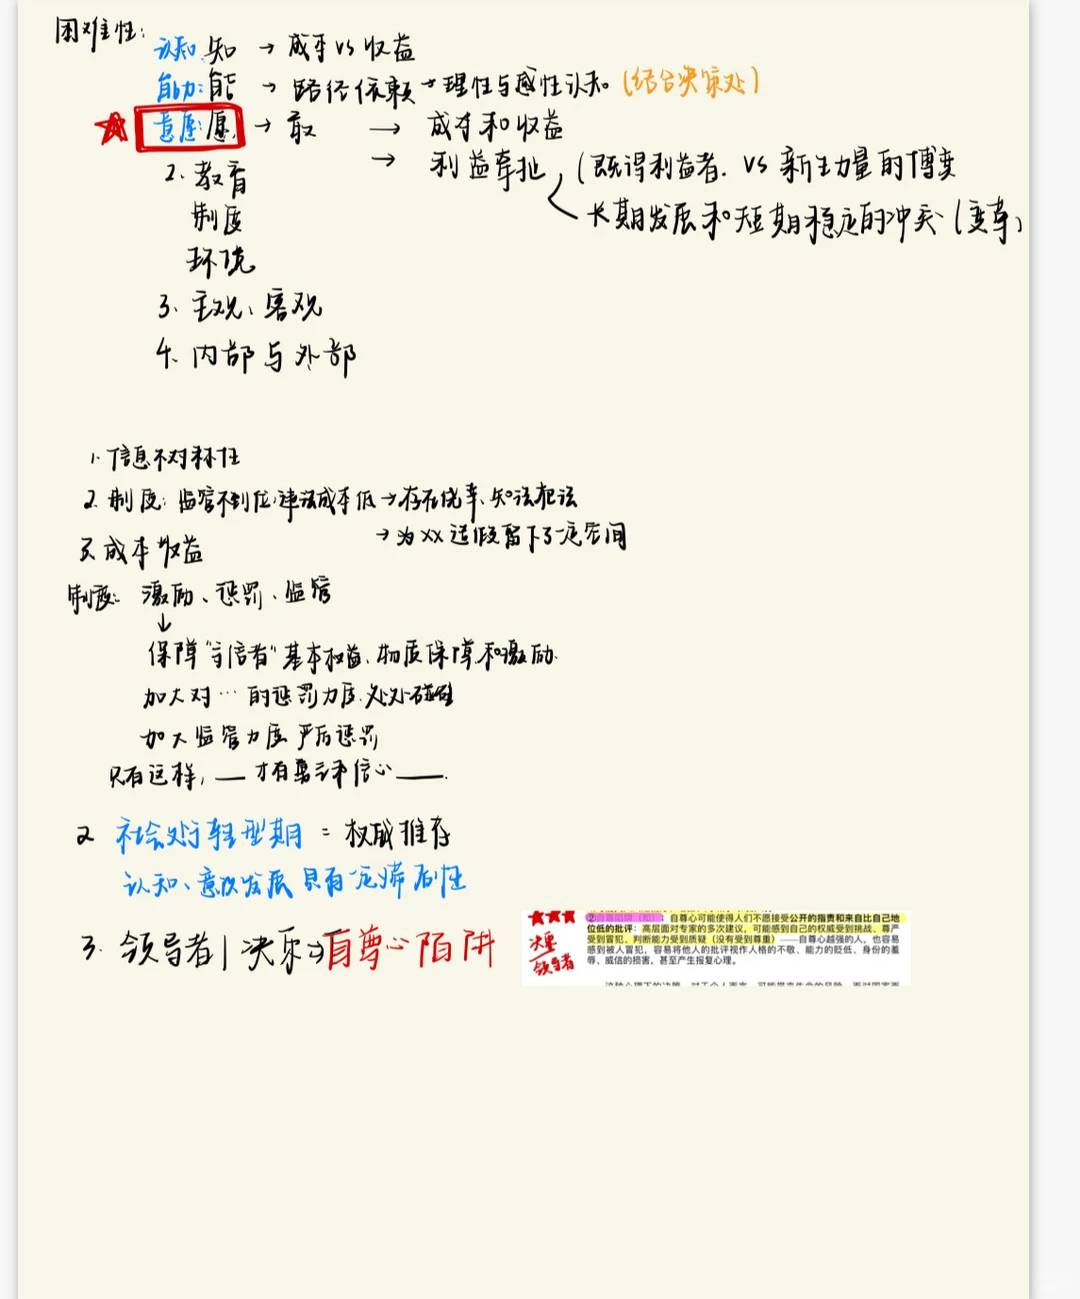 困难性:
认知:知 → 成本vs收益
能力:能 → 路径依赖 → 理性与感性认知 (结合决惊处)
意愿:愿 → 敢 → 成本和收益
→ 利益牵扯 (既得利益者. VS 新生力量的博弈
长期发展和短期稳定的冲突(变革)
2. 教育
制度
环境
3. 主观、客观
4. 内部与外部
1. 信息不对称性
2. 制度: 监管不到位,违法成本低→存在侥幸、知法犯法
→为XX造假留下了一定空间
3. 成本收益
制度: 激励、惩罚、监管
↓
保障“守信者”基本权益、物质保障和激励.
加大对…的惩罚力度,处处碰壁
加大监管力度 严厉惩罚
只有这样, — 才有勇气和信心 —.
2 社会处于转型期 = 权威推荐
认知、意识发展 具有一定滞后性
3. 领导者|决策⇒自尊心陷阱
决策
领导者
②自尊陷阱(知):自尊心可能使得人们不愿接受公开的指责和来自比自己地
位低的批评:高层面对专家的多次建议,可能感到自己的权威受到挑战、尊严
受到冒犯、判断能力受到质疑(没有受到尊重)——自尊心越强的人,也容易
感到被人冒犯,容易将他人的批评视作人格的不敬、能力的贬低、身份的羞
辱、威信的损害,甚至产生报复心理。